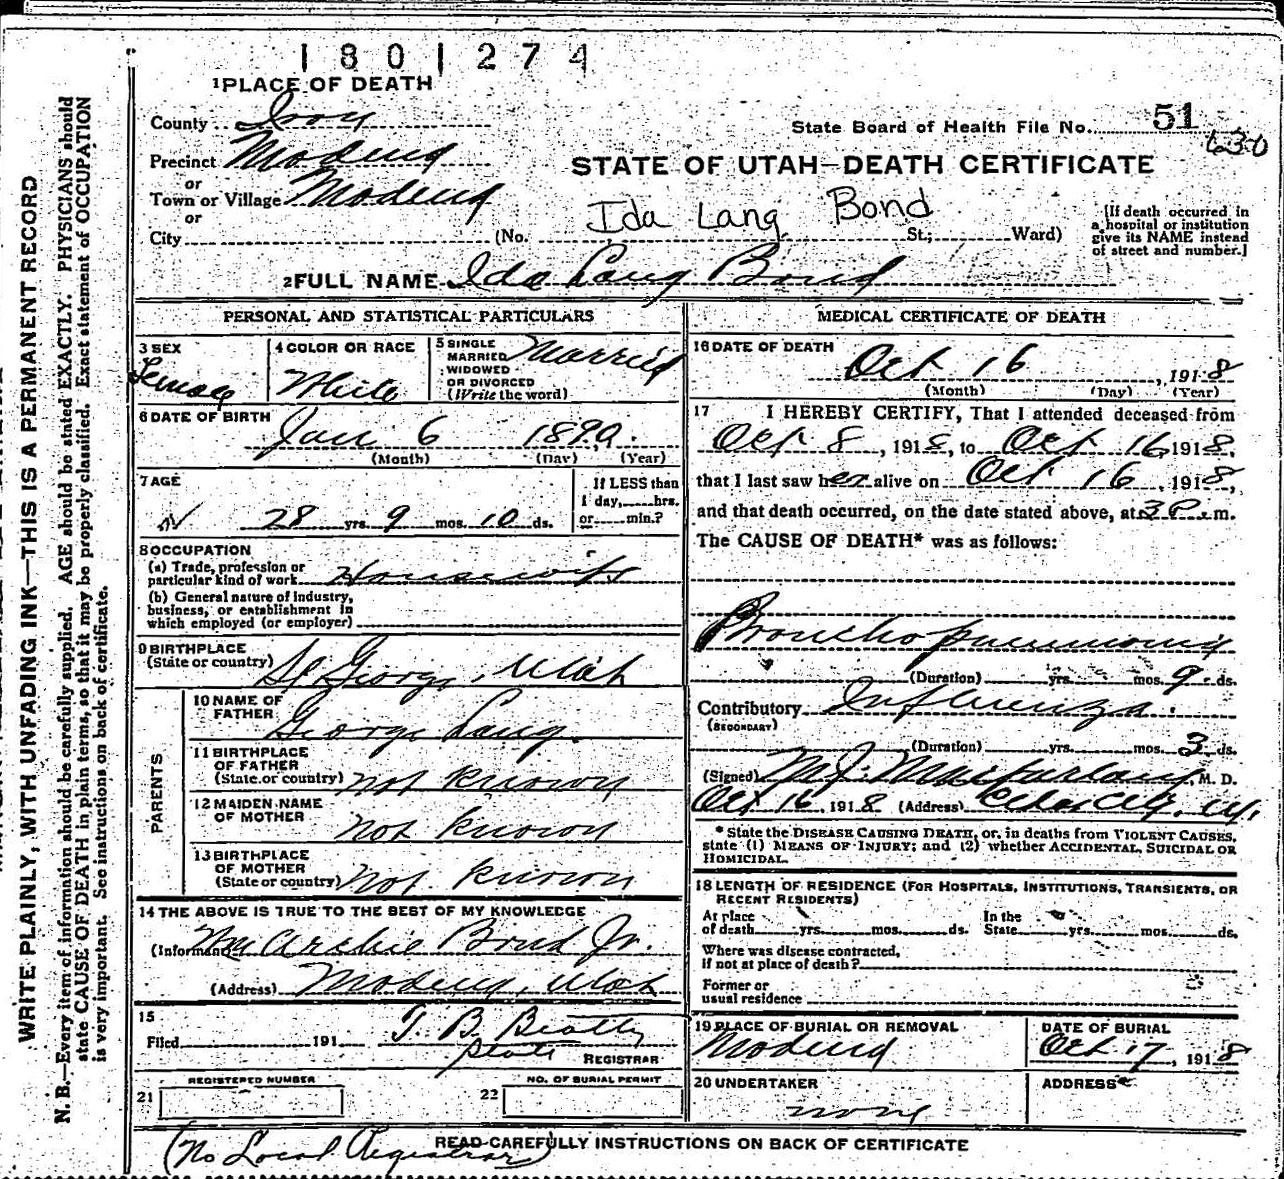 1801274
1 PLACE OF DEATH
County Iron
Precinct Modena
or
Town or Village Modena
or
City (No. St.; Ward)
Ida Lang Bond
State Board of Health File No. 51
630
STATE OF UTAH—DEATH CERTIFICATE
[If death occurred in
a hospital or institution
give its NAME instead
of street and number.]
2 FULL NAME Ida Lang Bond
PERSONAL AND STATISTICAL PARTICULARS
3 SEX
Female
4 COLOR OR RACE
White
5 SINGLE
MARRIED
WIDOWED
OR DIVORCED
(Write the word)
Married
6 DATE OF BIRTH
Jan 6 1890.
(Month) (Day) (Year)
7 AGE
28 yrs. 9 mos. 10 ds.
If LESS than
1 day, hrs.
or min.?
8 OCCUPATION
(a) Trade, profession or
particular kind of work Housewife
(b) General nature of industry,
business, or establishment in
which employed (or employer)
9 BIRTHPLACE
(State or country) St George, Utah
PARENTS
10 NAME OF
FATHER George Lang.
11 BIRTHPLACE
OF FATHER
(State or country) not known
12 MAIDEN NAME
OF MOTHER not known
13 BIRTHPLACE
OF MOTHER
(State or country) not known
14 THE ABOVE IS TRUE TO THE BEST OF MY KNOWLEDGE
(Informant) Wm Archie Bond Jr.
(Address) Modena, Utah
15
Filed 191 T. B. Beatty
State REGISTRAR
REGISTERED NUMBER
21
NO. OF BURIAL PERMIT
22
MEDICAL CERTIFICATE OF DEATH
16 DATE OF DEATH
Oct 16, 1918
(Month) (Day) (Year)
17 I HEREBY CERTIFY, That I attended deceased from
Oct 8, 1918, to Oct 16 1918,
that I last saw her alive on Oct 16, 1918,
and that death occurred, on the date stated above, at 3 P. m.
The CAUSE OF DEATH* was as follows:
Broncho pneumonia
(Duration) yrs. mos. 9 ds.
Contributory Influenza.
(SECONDARY)
(Duration) yrs. mos. 3 ds.
(Signed) M. J. Macfarlane, M. D.
Oct 16, 1918 (Address) Cedar City, Ut.
* State the DISEASE CAUSING DEATH, or, in deaths from VIOLENT CAUSES,
state (1) MEANS OF INJURY; and (2) whether ACCIDENTAL, SUICIDAL OR
HOMICIDAL.
18 LENGTH OF RESIDENCE (FOR HOSPITALS, INSTITUTIONS, TRANSIENTS, OR
RECENT RESIDENTS)
At place
of death yrs. mos. ds.
In the
State yrs. mos. ds.
Where was disease contracted,
if not at place of death?
Former or
usual residence
19 PLACE OF BURIAL OR REMOVAL
Modena
DATE OF BURIAL
Oct 17, 1918
20 UNDERTAKER
none
ADDRESS
READ CAREFULLY INSTRUCTIONS ON BACK OF CERTIFICATE
(No Local Registrar)
WRITE PLAINLY, WITH UNFADING INK—THIS IS A PERMANENT RECORD
N. B.—Every item of information should be carefully supplied. AGE should be stated EXACTLY. PHYSICIANS should
state CAUSE OF DEATH in plain terms, so that it may be properly classified. Exact statement of OCCUPATION
is very important. See instructions on back of certificate.